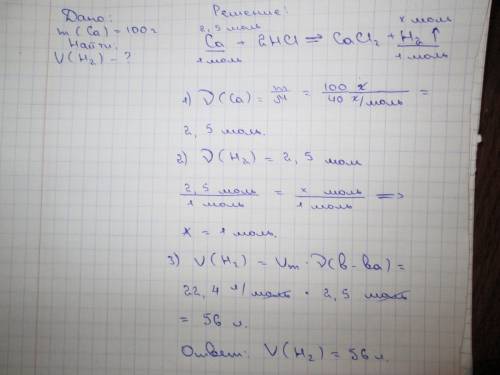 Дано:
m(Ca) = 100г
Найти:
V(H₂) - ?
Решение:
2,5 моль x моль
Ca + 2HCl = CaCl₂ + H₂ ↑
1 моль 1 моль
1) ν(Ca) = m/M = 100 г / 40 г/моль =
2,5 моль.
2) ν(H₂) = 2,5 моль
2,5 моль / 1 моль = x моль / 1 моль =>
x = 1 моль.
3) V(H₂) = Vm · ν(в-ва) =
22,4 л/моль · 2,5 моль
= 56 л.
Ответ: V(H₂) = 56 л.